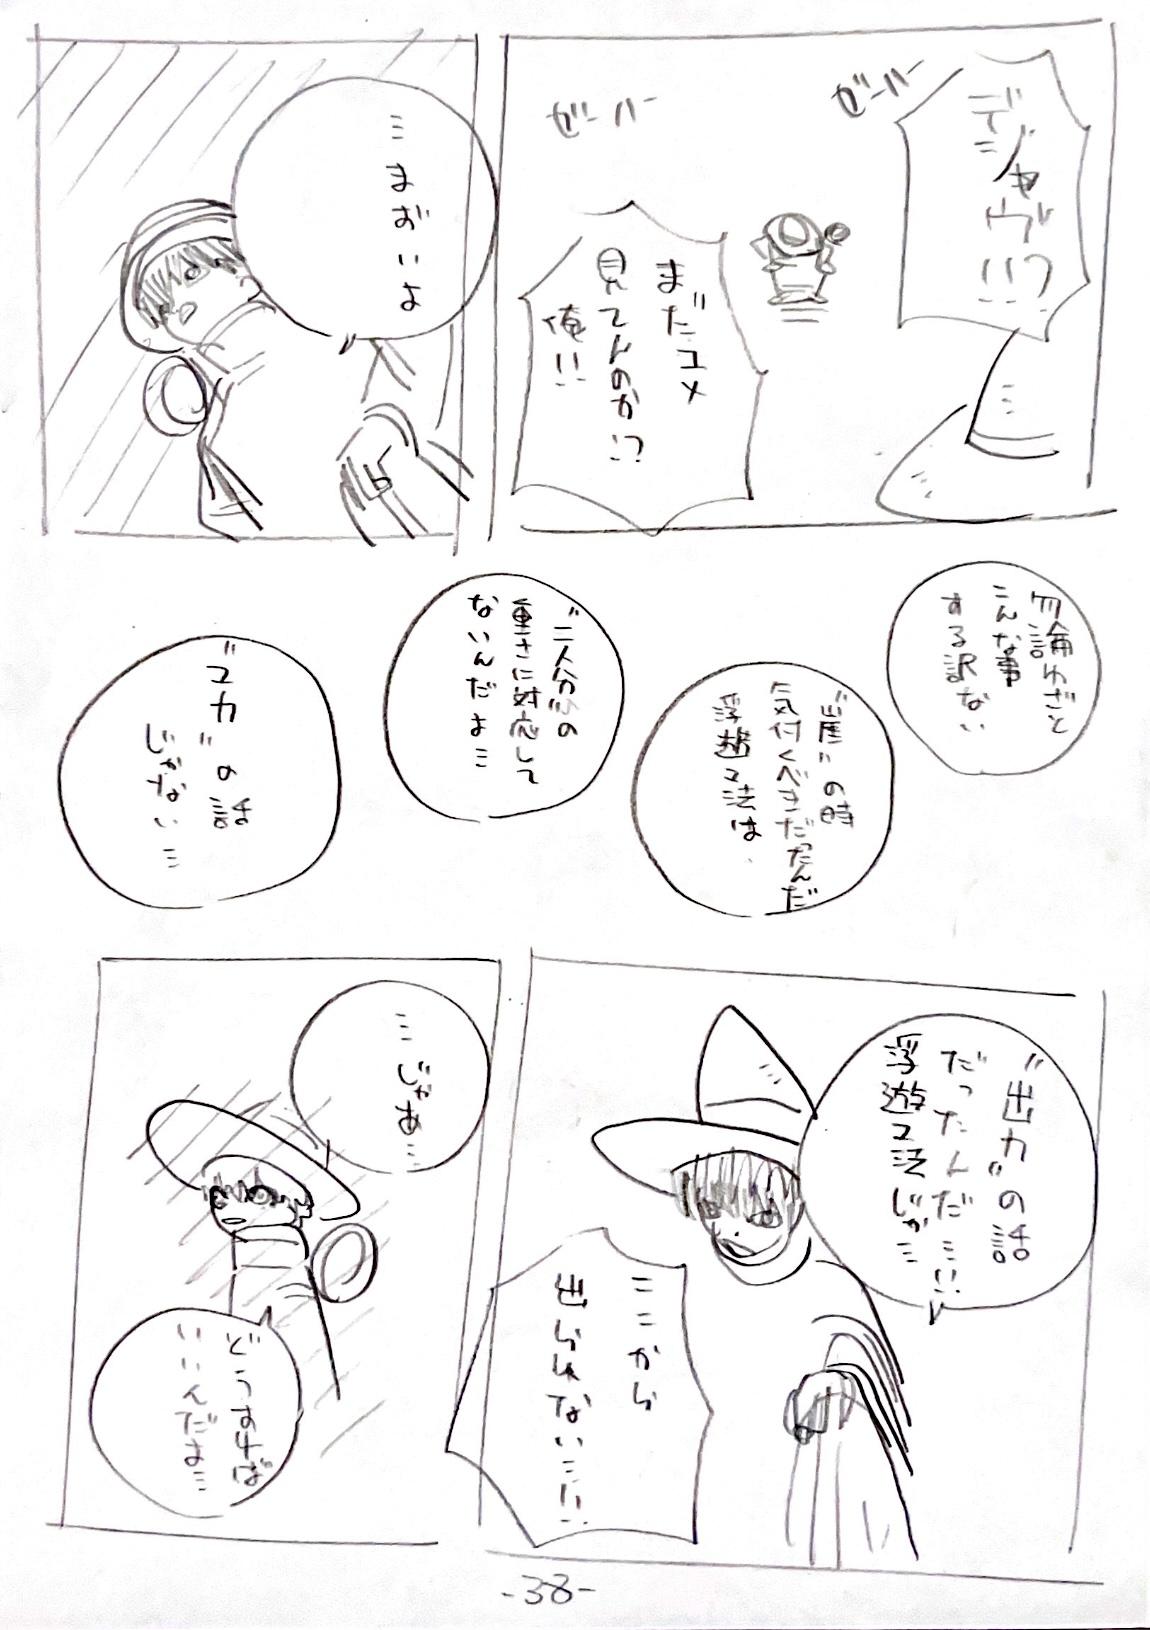 デジャヴ!!?
ゼーハー
ゼーハー
まだユメ
見てんのか!?
俺!!
…まずいよ
勿論わざと
こんな事
する訳ない
"崖"の時
気付くべきだったんだ
浮遊コ法は、
"二人分"の
重さに対応して
ないんだよ…
"コカ"の話
じゃない…
"出力"の話
だったんだ…!!
浮遊コ法じゃ…
ここから
出られない…!!
…じゃあ…
どうすれば
いいんだよ…
-38-